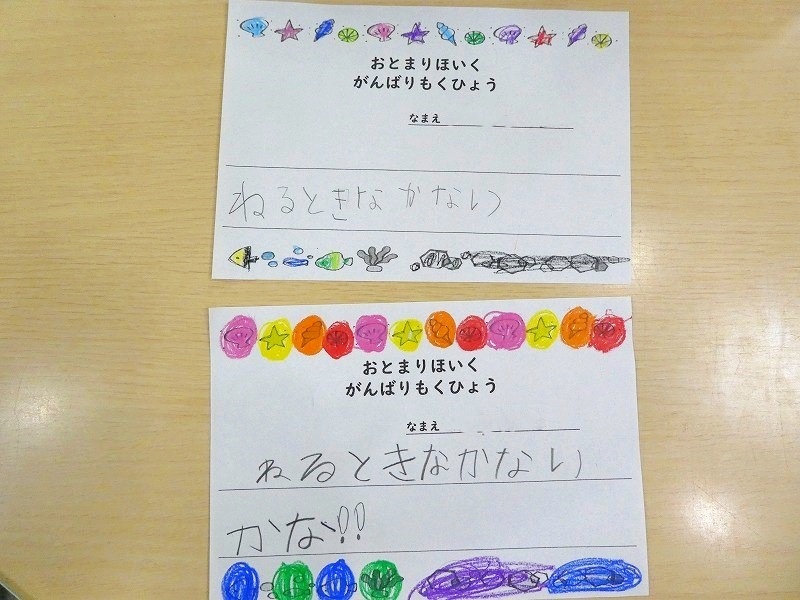 おとまりほいく
がんばりもくひょう
なまえ
ねるときなかない
おとまりほいく
がんばりもくひょう
なまえ
ねるときなかない
かな!!